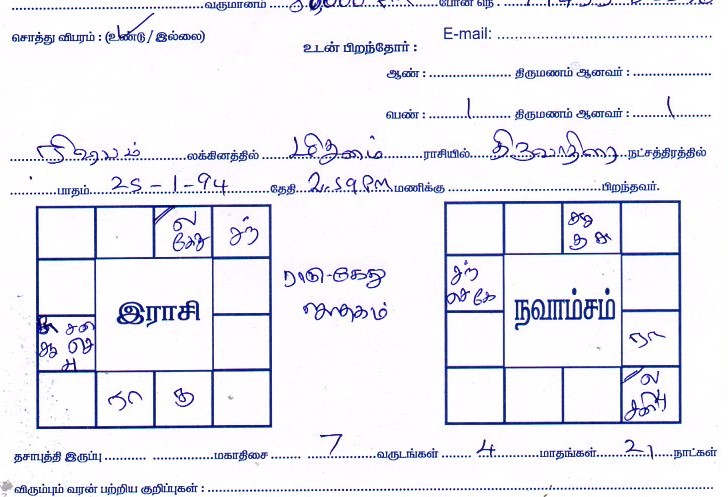 வருமானம் போன் எந்
சொத்து விபரம் : (உண்டு / இல்லை)
E-mail:
உடன் பிறந்தோர் :
ஆண் : திருமணம் ஆனவர் :
பெண் : 1 திருமணம் ஆனவர் : 1
ரிஷபம் லக்கினத்தில் மிதுனம் ராசியில் திருவாதிரை நட்சத்திரத்தில்
பாதம் 25-1-94 தேதி 2.59 PM மணிக்கு பிறந்தவர்.
ல
கேது சந்
ராகு-கேது
ஜாதகம்
இராசி
ரா கு
நவாம்சம்
சந்
கே
ரா
ல
தசாபுத்தி இருப்பு மகாதிசை 7 வருடங்கள் 4 மாதங்கள் 21 நாட்கள்
விரும்பும் வரன் பற்றிய குறிப்புகள் :